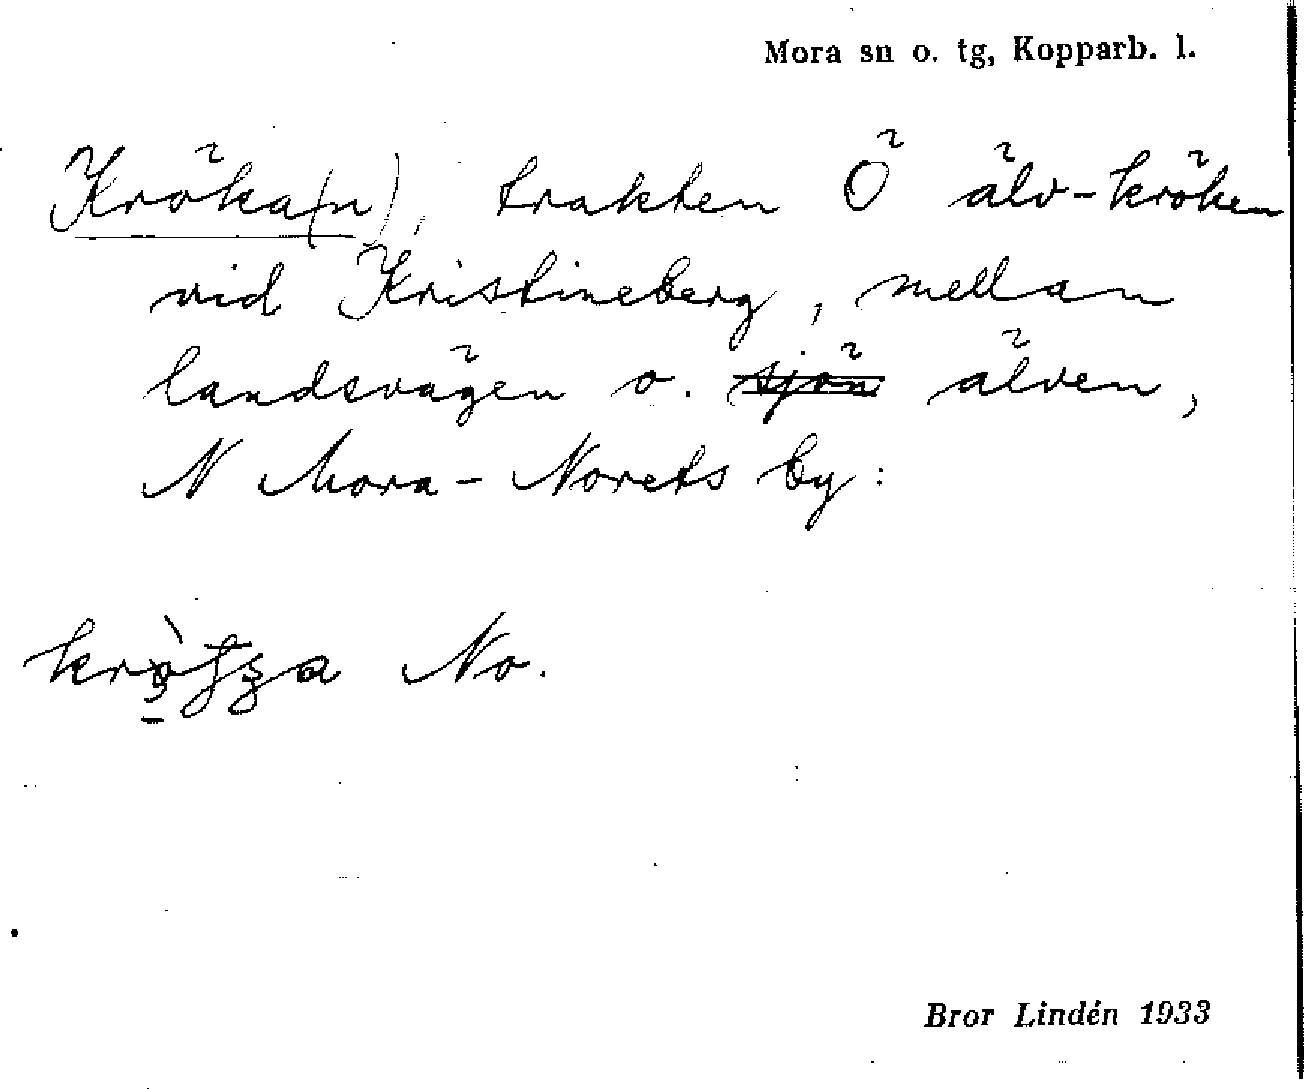 Mora sn o. tg, Kopparb. l.
Kröka(n), trakten Ö älv-kröken
vid Kristineberg, mellan
landsvägen o. ~~sjön~~ älven,
N Mora-Norets by:
No.
Bror Lindén 1933